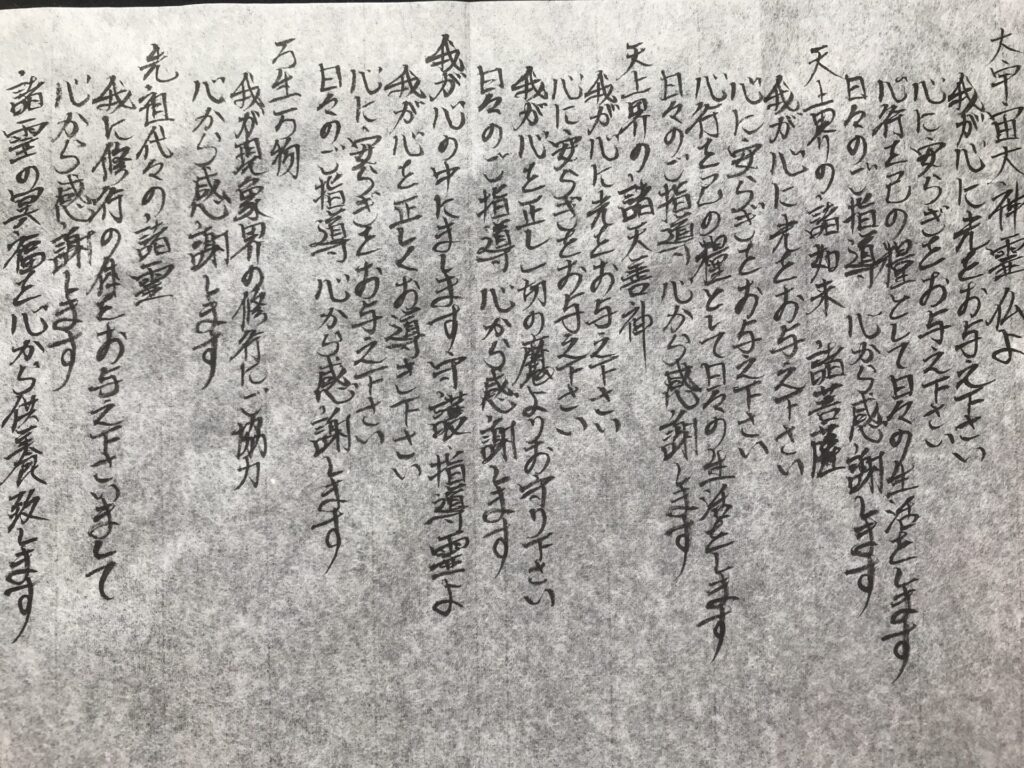 大宇宙大神霊仏よ
我が心に光をお与え下さい
心に安らぎをお与え下さい
心行を己の糧として日々の生活をします
日々のご指導 心から感謝します
天上界の諸如来 諸菩薩
我が心に光をお与え下さい
心に安らぎをお与え下さい
心行を己の糧として日々の生活をします
日々のご指導 心から感謝します
天上界の諸天善神
我が心に光をお与え下さい
心に安らぎをお与え下さい
我が心を正し一切の魔よりお守り下さい
日々のご指導 心から感謝します
我が心の中にまします守護 指導霊よ
我が心を正しくお導き下さい
心に安らぎをお与え下さい
日々のご指導 心から感謝します
万生万物
我が現象界の修行にご協力
心から感謝します
先祖代々の諸霊
我に修行の体をお与え下さいまして
心から感謝します
諸霊の冥福を心から供養致します